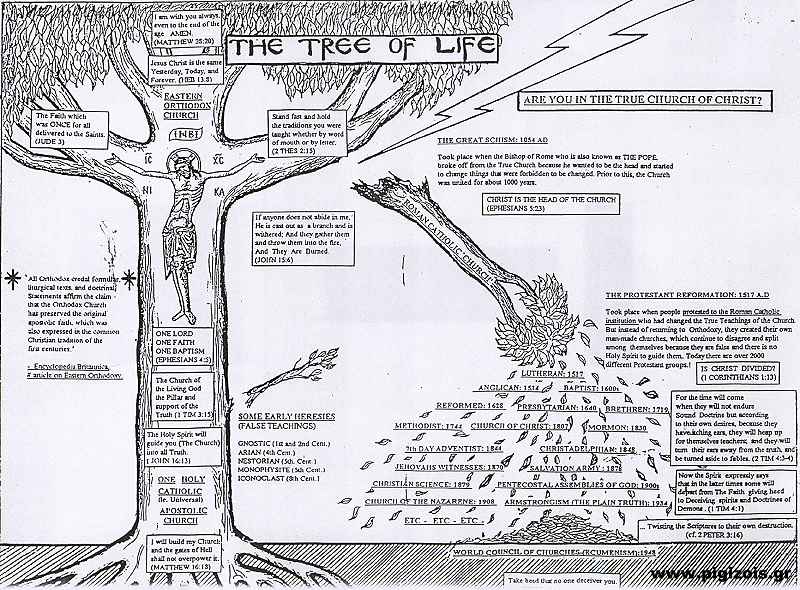 I am with you always,
even to the end of the
age AMEN.
(MATTHEW 28:20)
THE TREE OF LIFE
Jesus Christ is the same
Yesterday, Today, and
Forever. (HEB 13:8)
EASTERN
ORTHODOX
CHURCH
INBI
The Faith which
was ONCE for all
delivered to the Saints.
(JUDE 3)
Stand fast and hold
the traditions you were
taught whether by word
of mouth or by letter.
(2 THES 2:15)
IC XC
NI KA
ARE YOU IN THE TRUE CHURCH OF CHRIST?
THE GREAT SCHISM: 1054 AD
Took place when the Bishop of Rome who is also known as THE POPE,
broke off from the True Church because he wanted to be the head and started
to change things that were forbidden to be changed. Prior to this, the Church
was united for about 1000 years.
CHRIST IS THE HEAD OF THE CHURCH
(EPHESIANS 5:23)
ROMAN CATHOLIC CHURCH
If anyone does not abide in me,
He is cast out as a branch and is
withered; And they gather them
and throw them into the fire,
And They Are Burned.
(JOHN 15:6)
"All Orthodox credal formulas,
liturgical texts, and doctrinal
Statements affirm the claim
that the Orthodox Church
has preserved the original
apostolic faith, which was
also expressed in the common
Christian tradition of the
first centuries."
- Encyclopedia Britannica,
article on Eastern Orthodoxy.
ONE LORD
ONE FAITH
ONE BAPTISM
(EPHESIANS 4:5)
The Church of
the Living God
the Pillar and
support of the
Truth (1 TIM 3:15)
The Holy Spirit will
guide you (The Church)
into all Truth.
(JOHN 16:13)
ONE HOLY
CATHOLIC
(Ie. Universal)
APOSTOLIC
CHURCH
I will build my Church
and the gates of Hell
shall not overpower it.
(MATTHEW 16:18)
SOME EARLY HERESIES
(FALSE TEACHINGS)
GNOSTIC (1st and 2nd Cent.)
ARIAN (4th Cent.)
NESTORIAN (5th. Cent.)
MONOPHYSITE (5th Cent.)
ICONOCLAST (8th Cent.)
THE PROTESTANT REFORMATION: 1517 A.D
Took place when people protested to the Roman Catholic
institution who had changed the True Teachings of the Church
But instead of returning to Orthodoxy, they created their own
man-made churches, which continue to disagree and split
among themselves because they are false and there is no
Holy Spirit to guide them, Today there are over 2000
different Protestant groups.!
IS CHRIST DIVIDED?
(1 CORINTHIANS 1:13)
LUTHERAN: 1517
ANGLICAN: 1534 BAPTIST: 1600s
REFORMED: 1628 PRESBYTERIAN: 1640 BRETHREN: 1719
METHODIST: 1744 CHURCH OF CHRIST: 1807 MORMON: 1830
7th DAY ADVENTIST: 1844 CHRISTADELPHIAN: 1848
JEHOVAHS WITNESSES: 1870 SALVATION ARMY: 1878
CHRISTIAN SCIENCE: 1879 PENTECOSTAL ASSEMBLIES OF GOD: 1900s
CHURCH OF THE NAZARENE: 1908 ARMSTRONGISM (THE PLAIN TRUTH): 1934
ETC - ETC - ETC -
WORLD COUNCIL OF CHURCHES (ECUMENISM): 1948
For the time will come
when they will not endure
Sound Doctrine but according
to their own desires, because they
have itching ears, they will heap up
for themselves teachers; and they will
turn their ears away from the truth, and
be turned aside to fables. (2 TIM 4:3-4)
Now the Spirit expressly says
that in the latter times some will
depart from The Faith giving heed
to Deceiving spirits and Doctrines of
Demons. (1 TIM 4:1)
... Twisting the Scriptures to their own destruction.
(cf. 2 PETER 3:16)
Take heed that no one deceives you.
www.pigizois.gr